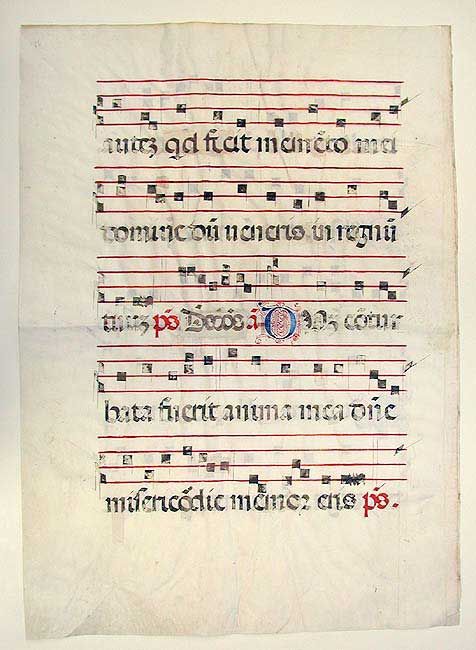 autez qd fecit memēto mei
domine dū veneris in regnū
tuuz ps a Duz cōtur
bata fuerit anima mea dñe
misericōdie memor eris ps.